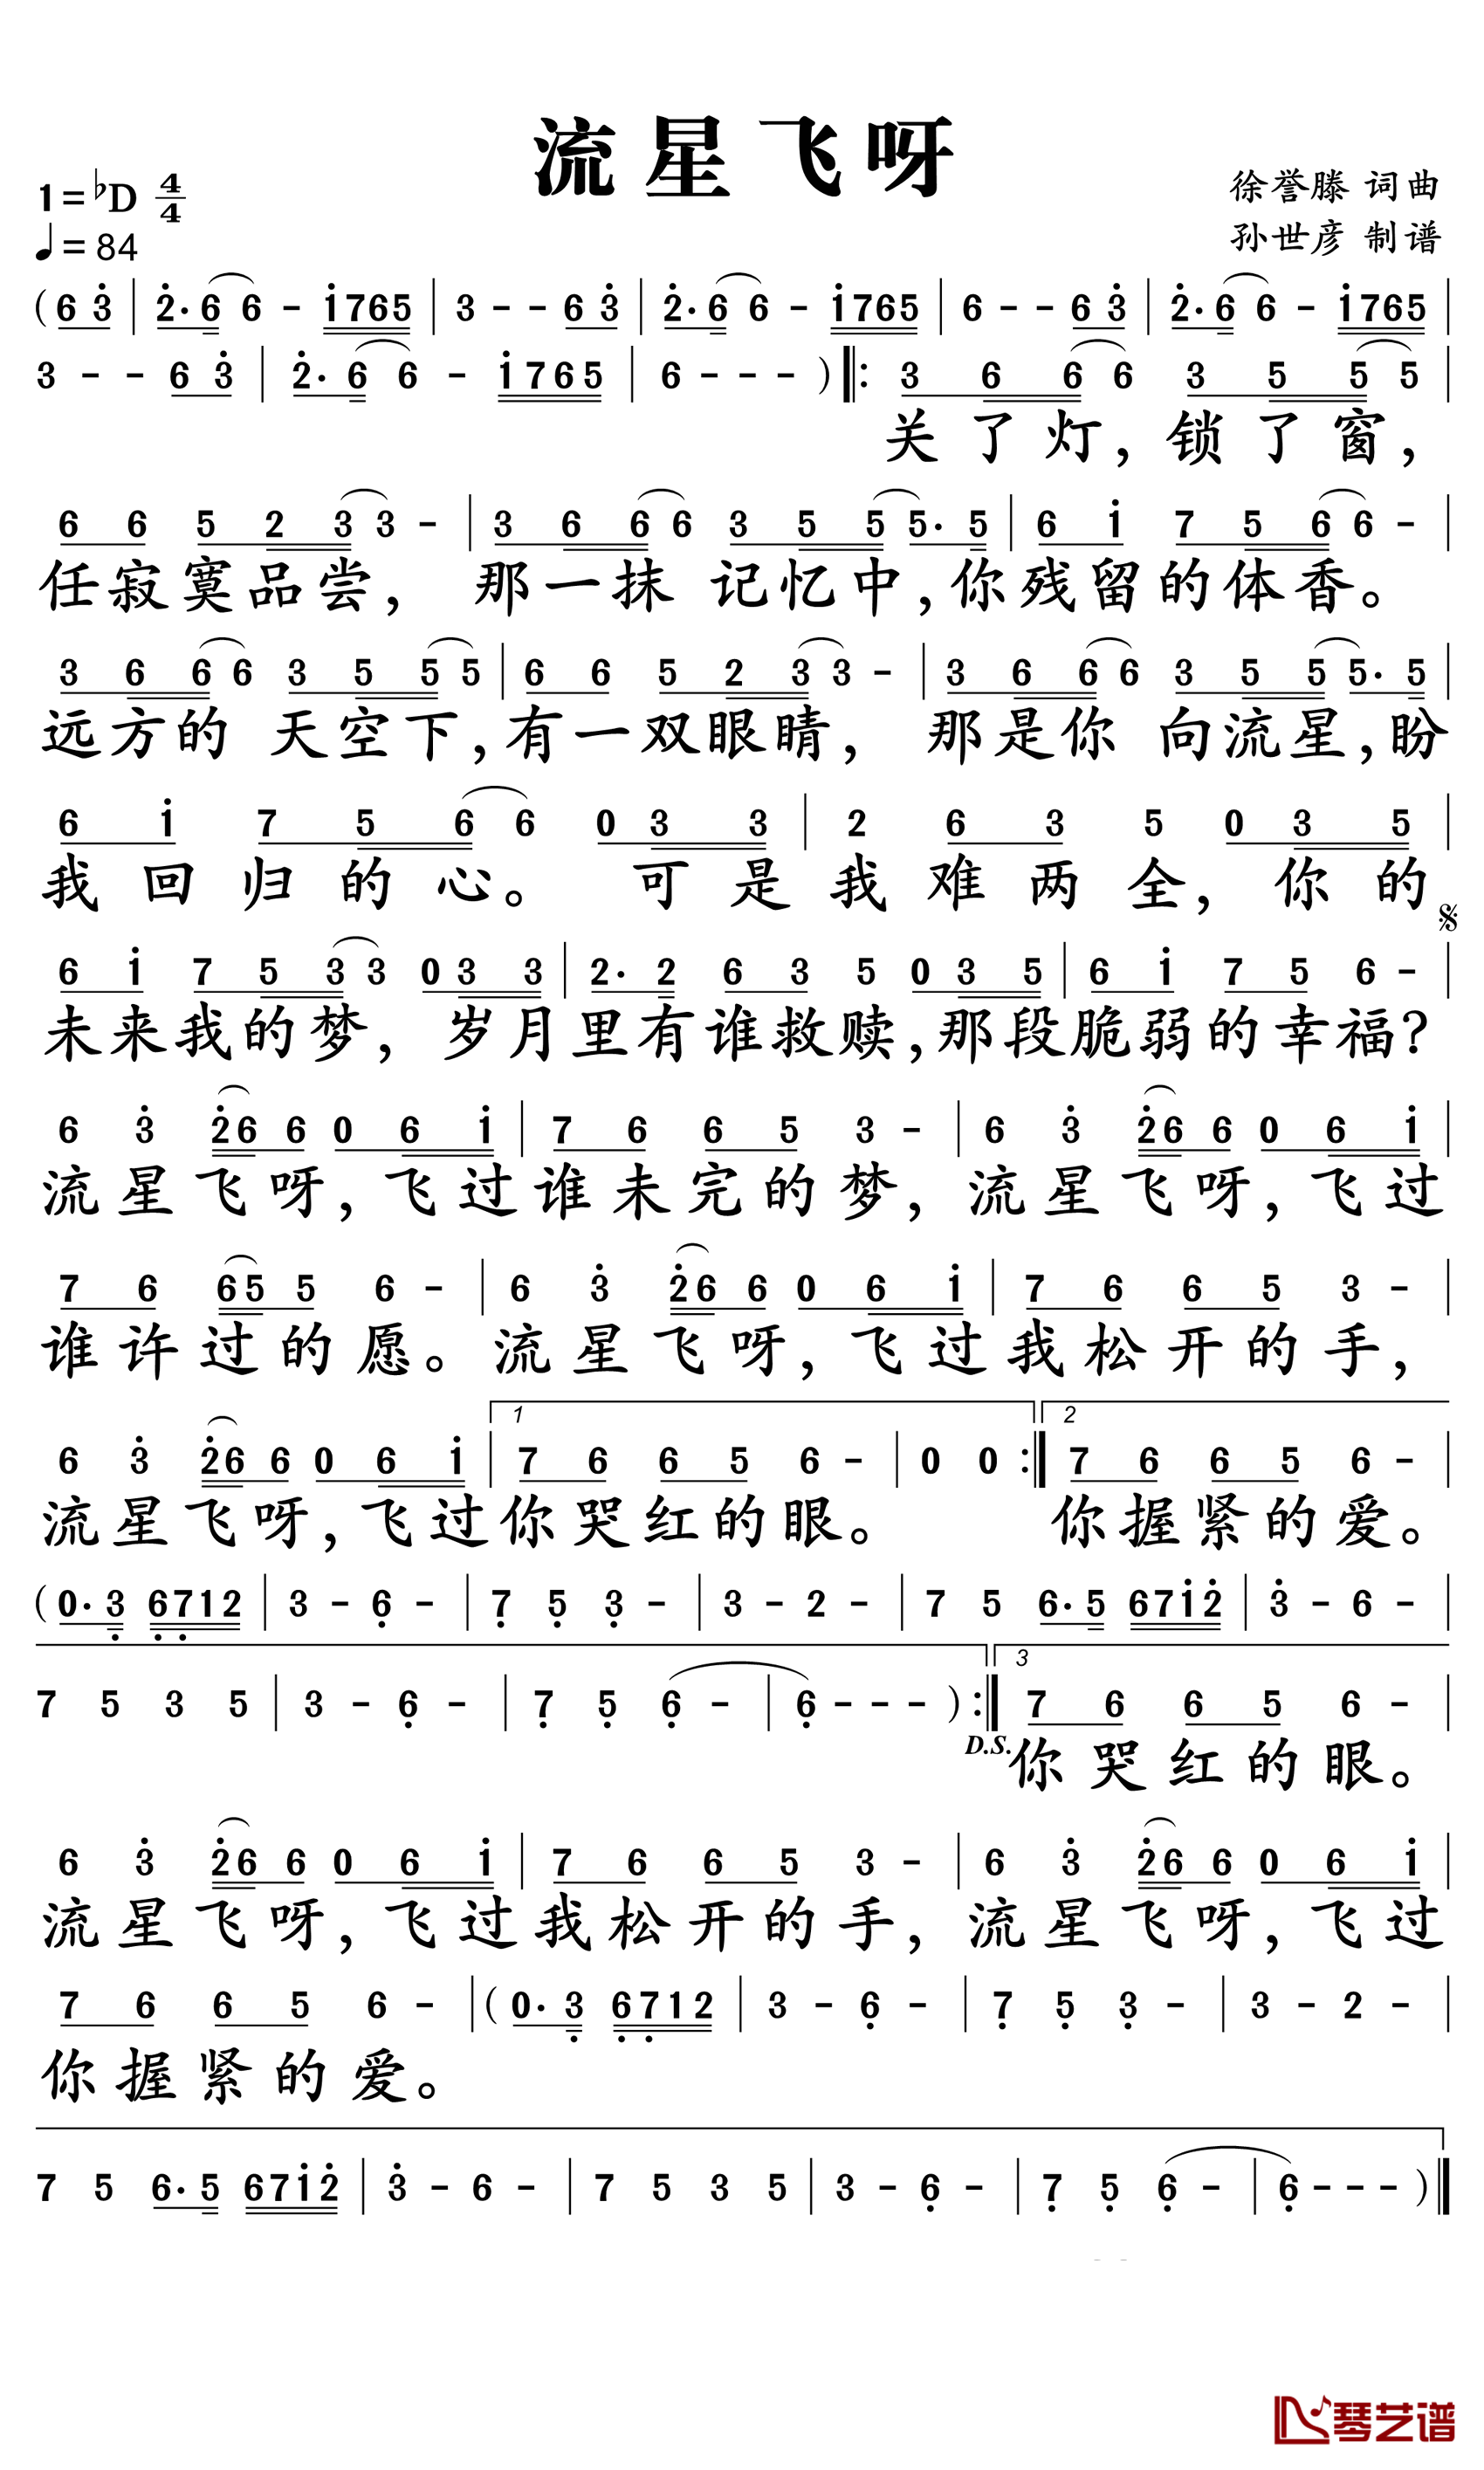 流星飞呀
1=♭D 4/4
徐誉滕 词曲
♩=84
孙世彦 制谱
(6 3̇ | 2̇·6 6 - i̇765 | 3 - - 6 3̇ | 2̇·6 6 - i̇765 | 6 - - 6 3̇ | 2̇·6 6 - i̇765 |
3 - - 6 3̇ | 2̇·6 6 - i̇765 | 6 - - - ) ‖: 3 6 6 6 3 5 5 5 |
关了灯,锁了窗,
6 6 5 2 3 3 - | 3 6 6 6 3 5 5 5· 5 | 6 i̇ 7 5 6 6 - |
任寂寞品尝, 那一抹 记忆中,你残留的体香。
3 6 6 6 3 5 5 5 | 6 6 5 2 3 3 - | 3 6 6 6 3 5 5 5· 5 |
远方的 天空下,有一双眼睛, 那是你 向流星,盼
6 i̇ 7 5 6 6 0 3 3 | 2 6 3 5 0 3 5 |
我回归的心。 可是我难两全, 你的
𝄋
6 i̇ 7 5 3 3 0 3 3 | 2· 2 6 3 5 0 3 5 | 6 i̇ 7 5 6 - |
未来我的梦, 岁月里有谁救赎,那段脆弱的幸福?
6 3̇ 2̇6 6 0 6 i̇ | 7 6 6 5 3 - | 6 3̇ 2̇6 6 0 6 i̇ |
流星飞呀,飞过谁未完的梦, 流星飞呀,飞过
7 6 65 5 6 - | 6 3̇ 2̇6 6 0 6 i̇ | 7 6 6 5 3 - |
谁许过的愿。流星飞呀,飞过我松开的手,
1 2
6 3̇ 2̇6 6 0 6 i̇ | 7 6 6 5 6 - | 0 0 :‖ 7 6 6 5 6 - |
流星飞呀,飞过你哭红的眼。 你握紧的爱。
(0· 3̣ 6̣7̣12 | 3 - 6̣ - | 7̣ 5̣ 3̣ - | 3 - 2 - | 7 5 6·5 67i̇2̇ | 3̇ - 6 - |
3
7 5 3 5 | 3 - 6̣ - | 7̣ 5̣ 6̣ - | 6̣ - - - ) :‖ 7 6 6 5 6 - |
D.S. 你哭红的眼。
6 3̇ 2̇6 6 0 6 i̇ | 7 6 6 5 3 - | 6 3̇ 2̇6 6 0 6 i̇ |
流星飞呀,飞过我松开的手, 流星飞呀,飞过
7 6 6 5 6 - | (0· 3̣ 6̣7̣12 | 3 - 6̣ - | 7̣ 5̣ 3̣ - | 3 - 2 - |
你握紧的爱。
7 5 6·5 67i̇2̇ | 3̇ - 6 - | 7 5 3 5 | 3 - 6̣ - | 7̣ 5̣ 6̣ - | 6̣ - - - ) ‖
琴艺谱